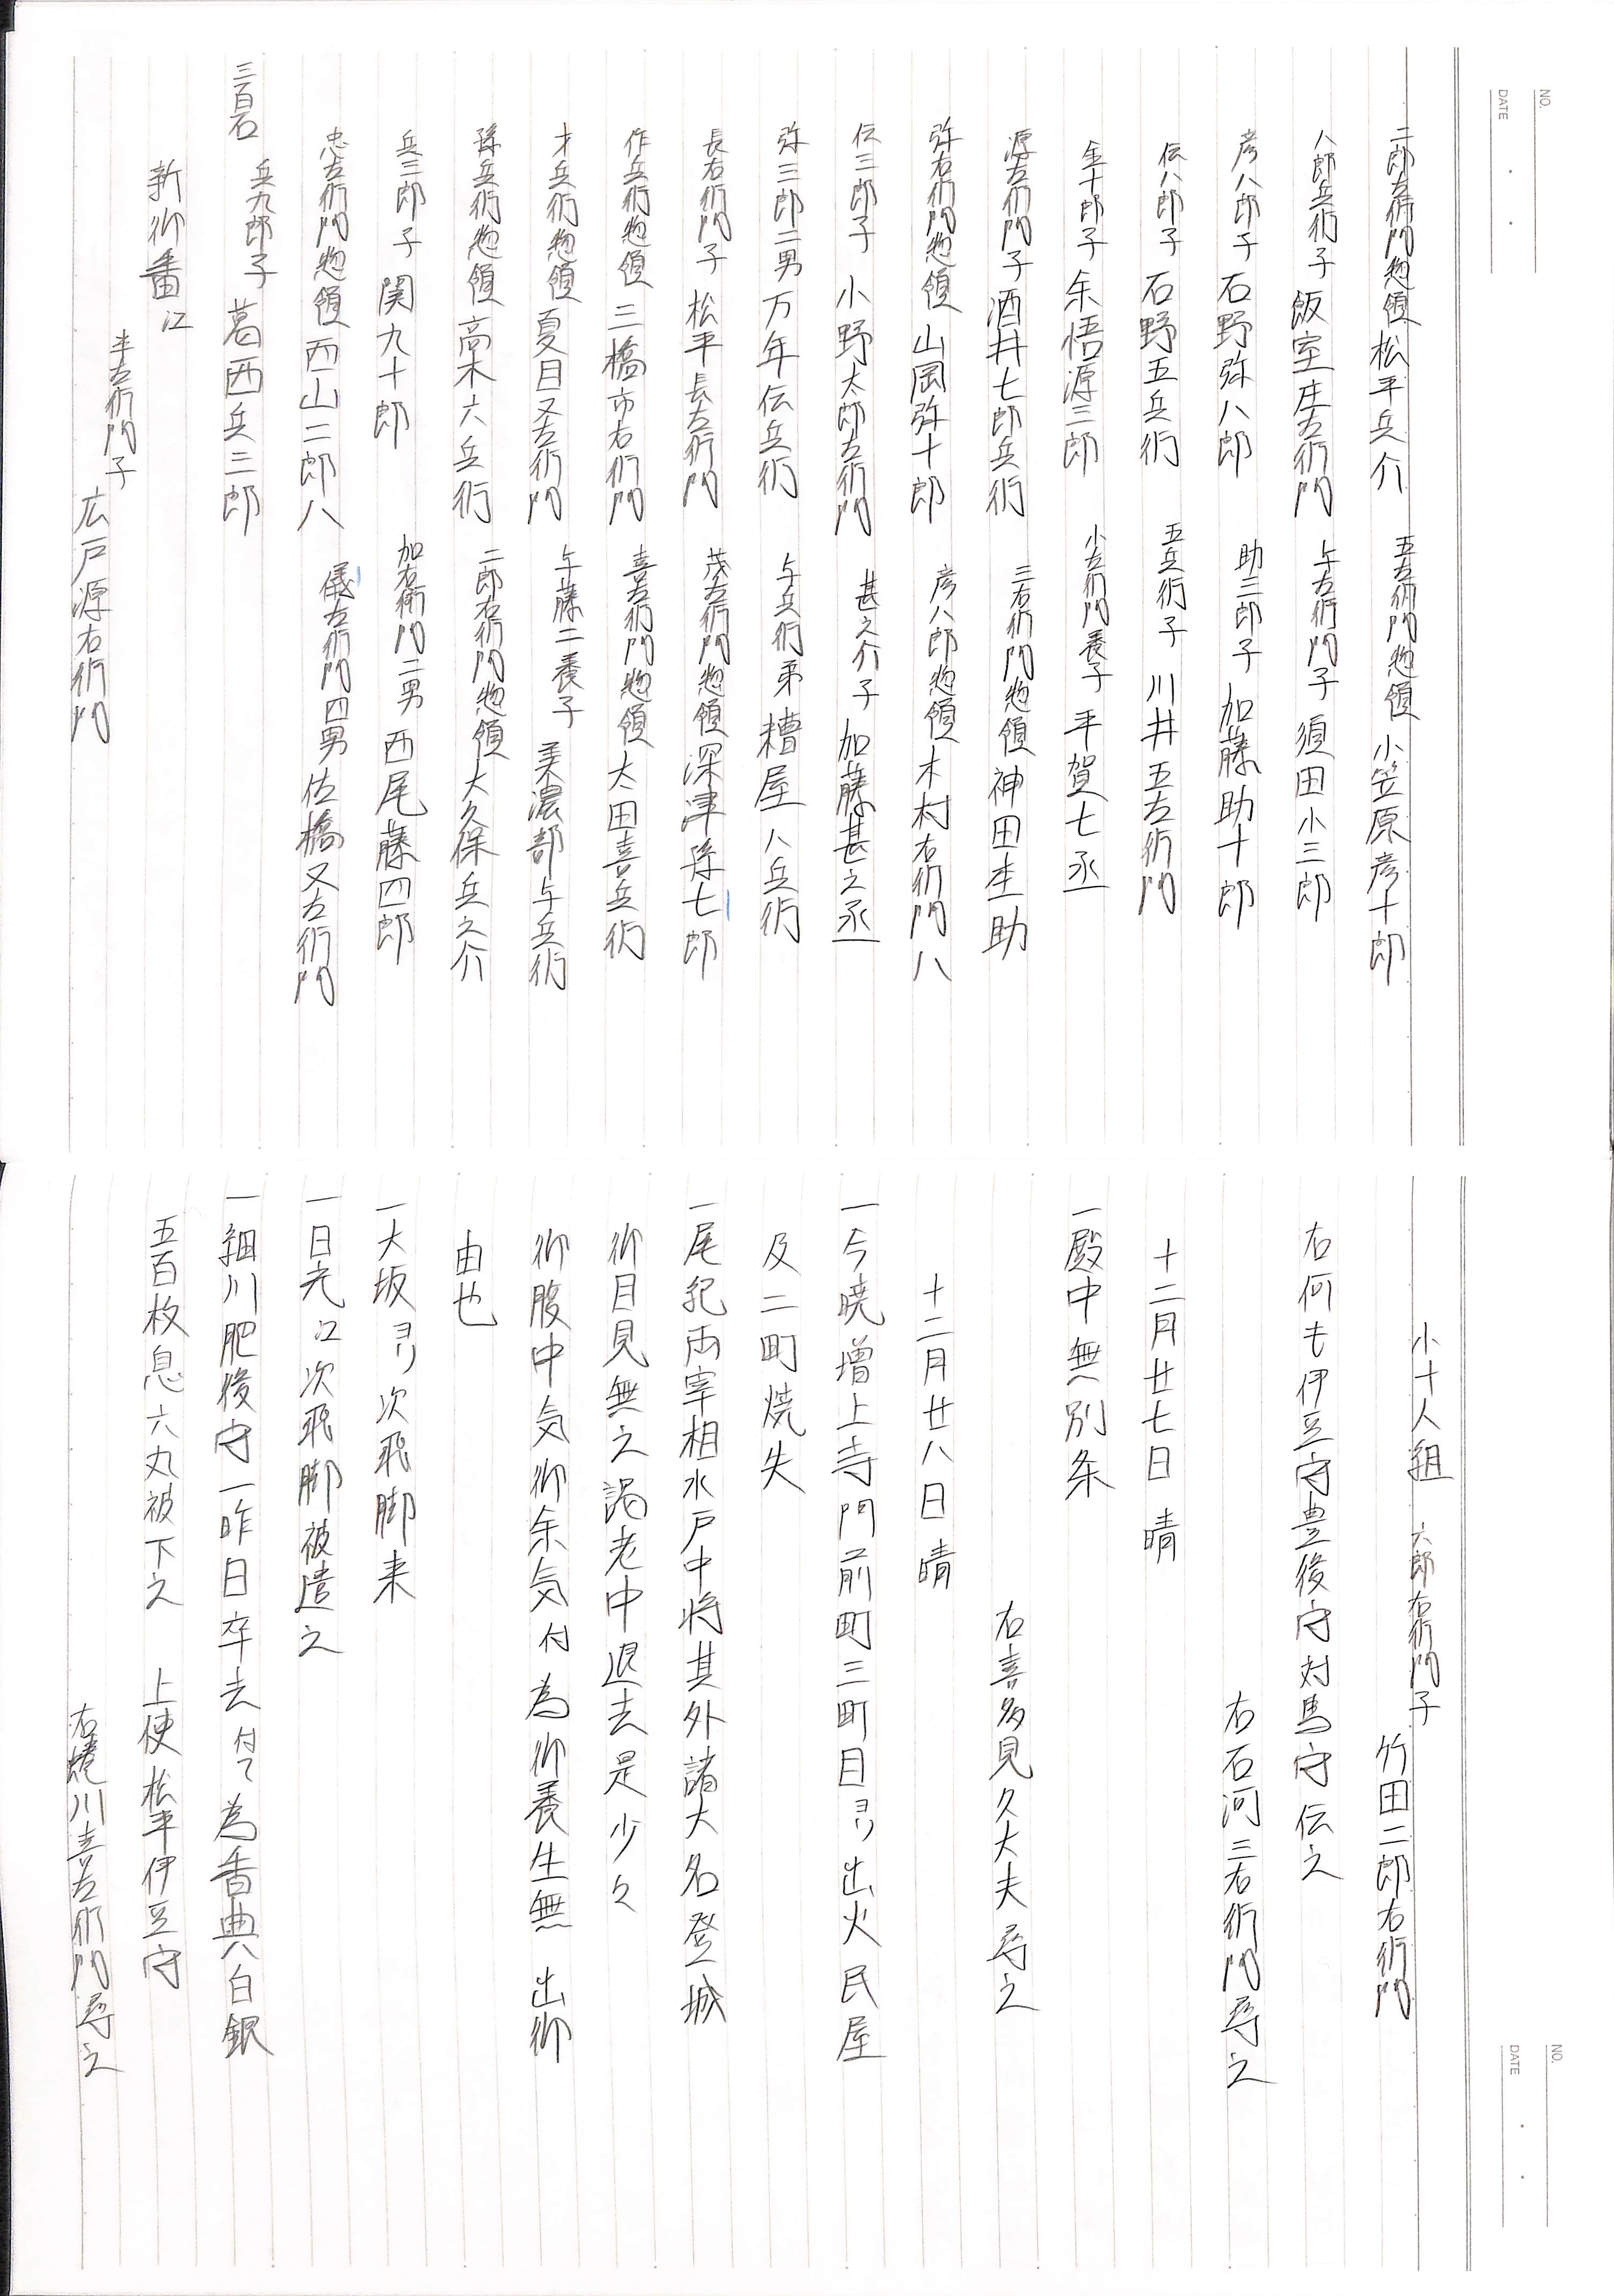 NO.
DATE
二郎右衛門惣領 松平兵介 五左衛門惣領 小笠原彦十郎
八郎兵衛子 飯室庄左衛門 与右衛門子 須田小三郎
彦八郎子 石野弥八郎 助三郎子 加藤助十郎
伝八郎子 石野五兵衛 五兵衛子 川井五左衛門
金十郎子 余悟源三郎 小左衛門養子 平賀七丞
源左衛門子 酒井七郎兵衛 三右衛門惣領 神田杢助
弥右衛門惣領 山岡弥十郎 彦八郎惣領 木村右衛門八
伝三郎子 小野太郎左衛門 甚之介子 加藤甚之丞
弥三郎二男 万年伝兵衛 与兵衛弟 糟屋八兵衛
長右衛門子 松平長左衛門 茂左衛門惣領 深津孫七郎
作兵衛惣領 三橋市右衛門 喜左衛門惣領 太田喜兵衛
才兵衛惣領 夏目又左衛門 与藤二養子 美濃部与兵衛
孫兵衛惣領 高木六兵衛 二郎右衛門惣領 大久保兵之介
兵三郎子 関九十郎 加右衛門二男 西尾藤四郎
忠左衛門惣領 西山二郎八 儀左衛門四男 佐橋又左衛門
三百石 兵九郎子 葛西兵三郎
新御番江
半左衛門子 広戸源右衛門
NO.
DATE
小十人組 六郎右衛門子 竹田二郎右衛門
右何も伊豆守豊後守対馬守伝之
右石河三右衛門尋之
十二月廿七日 晴
一殿中無別条
右喜多見久大夫尋之
十二月廿八日 晴
一今暁増上寺門前町三町目ヨリ出火民屋
及二町焼失
一尾紀両宰相水戸中将其外諸大名登城
御目見無之謁老中退去是少々
御腹中気御余気付為御養生無 出御
由也
一大坂ヨリ次飛脚来
一日光江次飛脚被遣之
一細川肥後守一昨日卒去付て為香典白銀
五百枚息六丸被下之 上使松平伊豆守
右蜷川喜左衛門尋之